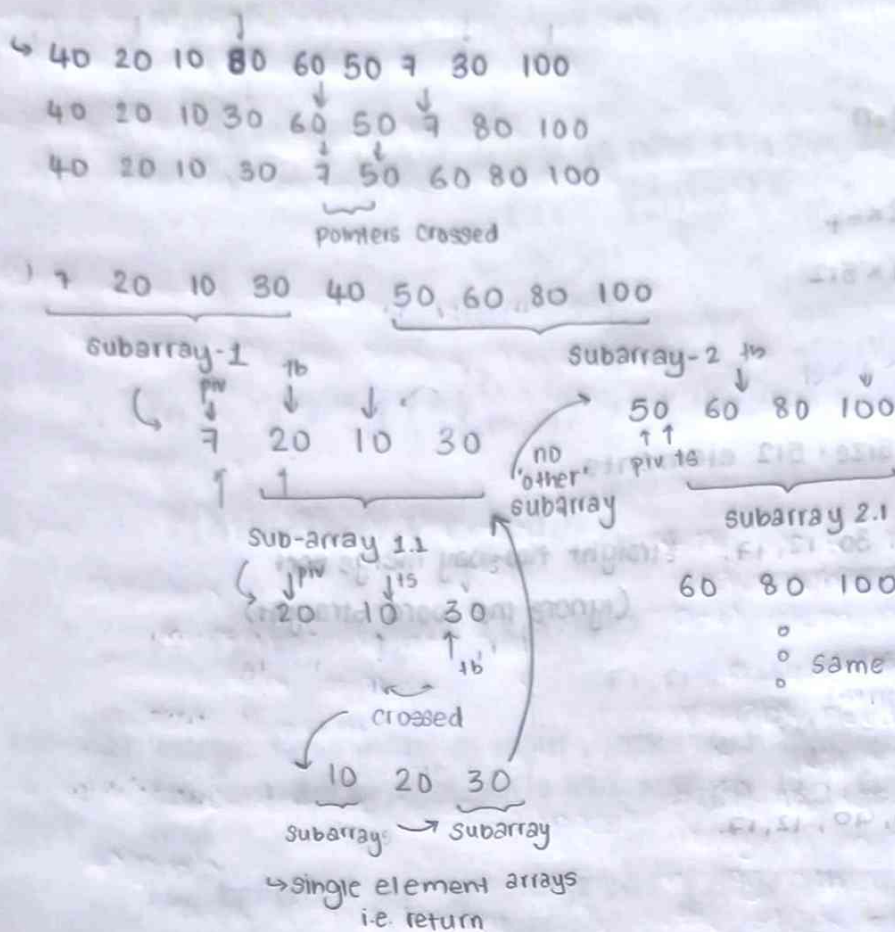 ↳ 40 20 10 80 60 50 7 30 100
40 20 10 30 60 50 7 80 100
40 20 10 30 7 50 60 80 100
pointers crossed
7 20 10 30 40 50 60 80 100
subarray-1
subarray-2
piv tb
7 20 10 30
tb
50 60 80 100
piv ts
no
'other'
subarray
sub-array 1.1
subarray 2.1
piv ts
20 10 30
tb
crossed
60 80 100
same
10 20 30
subarray → subarray
↳ single element arrays
i.e. return